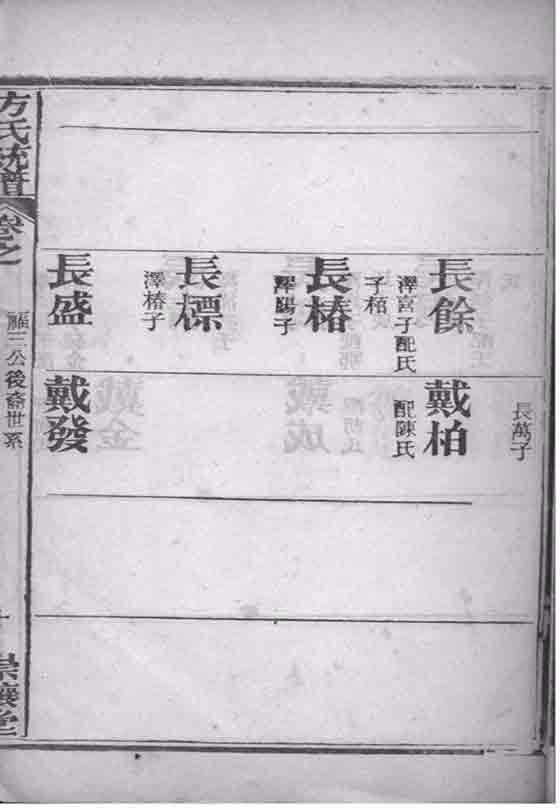 長餘
澤宮子配氏
子栢
長椿
澤陽子
長標
澤椿子
長盛
長萬子
戴柏
配陳氏
戴發
方氏統譜
卷之
福三公後裔世系